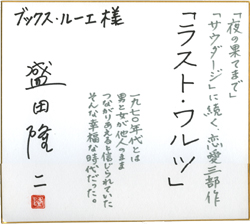 「夜の果てまで」
「サウダージ」に続く恋愛三部作
「ラスト・ワルツ」
一九七〇年代とは
男と女が他人のまま
つながりあえると信じられていた
そんな幸福な時代だった。
ブックス・ルーエ様
盛田隆二